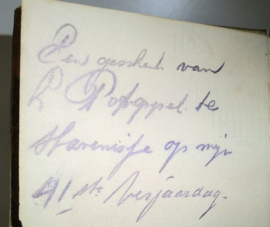 Een geschenk van
P. Potappel te
Stavenisse op mijn
41ste Verjaardag.